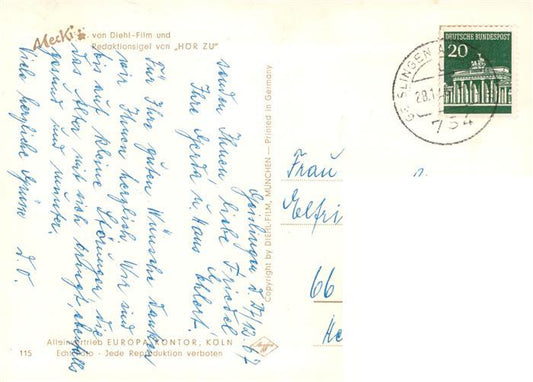 Mecki
von Diehl-Film und
Redaktionsigel von „HÖR ZU"
Geislingen, d. 27/12.67
Ihre liebe Friedel
Für Ihre guten Wünsche danken
wir Ihnen herzlich. Wir sind
bis auf kleine Störungen, die
das Alter mit sich bringt, ebenfalls
gesund und munter.
Viele herzliche Grüsse
senden Ihnen
Ihre Gerda u. Hans
Copyright by DIEHL-FILM, MÜNCHEN — Printed in Germany
DEUTSCHE BUNDESPOST
20
GEISLINGEN
28.1
734
Frau
Elfri
66
Alleinvertrieb EUROPA-KONTOR, KÖLN
115 Echt Foto - Jede Reproduktion verboten